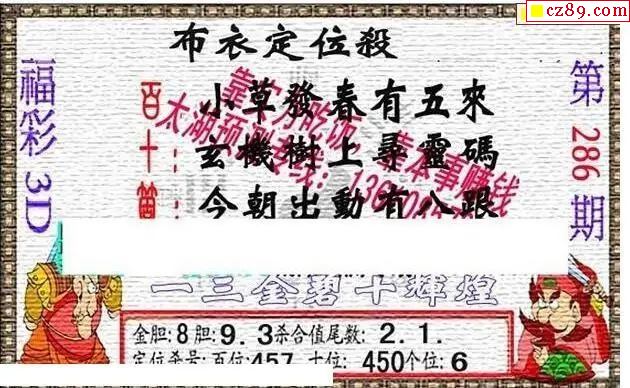 cz89.com
布衣定位殺
福彩3D
第286期
百:小草發春有五來
十:玄機樹上尋靈碼
今朝出動有八跟
一三金碧十輝煌
金胆:8胆:9.3杀合值尾数:2.1.
定位杀号:百位:457 十位:450个位:6